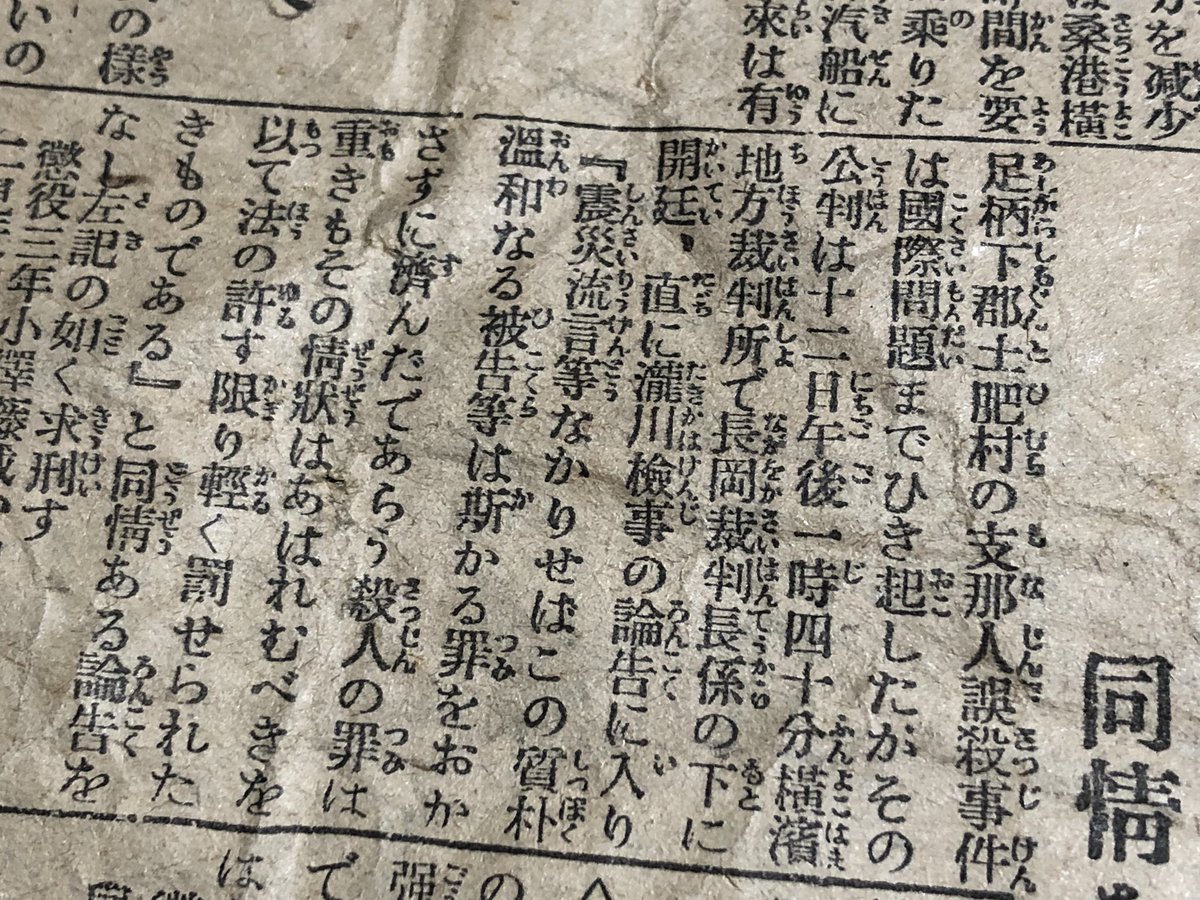 同情
足柄下郡土肥村の支那人誤殺事件
は國際問題までひき起したがその
公判は十二日午後一時四十分横濱
地方裁判所で長岡裁判長係の下に
開廷、直に瀧川檢事の論告に入り
『震災流言等なかりせばこの質朴
溫和なる被告等は斯かる罪をおか
さずに濟んだであらう殺人の罪は
重きもその情狀はあはれむべきを
以て法の許す限り輕く罰せられた
きものである』と同情ある論告を
なし左記の如く求刑す
懲役三年小澤藤
力を減少
は桑港橫
間を要
乘りた
汽船に
來は有
の樣
いの
の
强
で
は